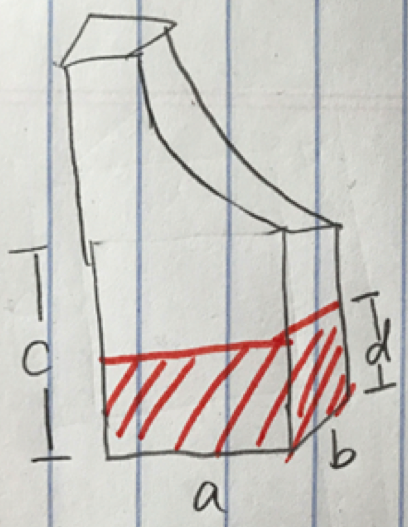 c
d
b
a